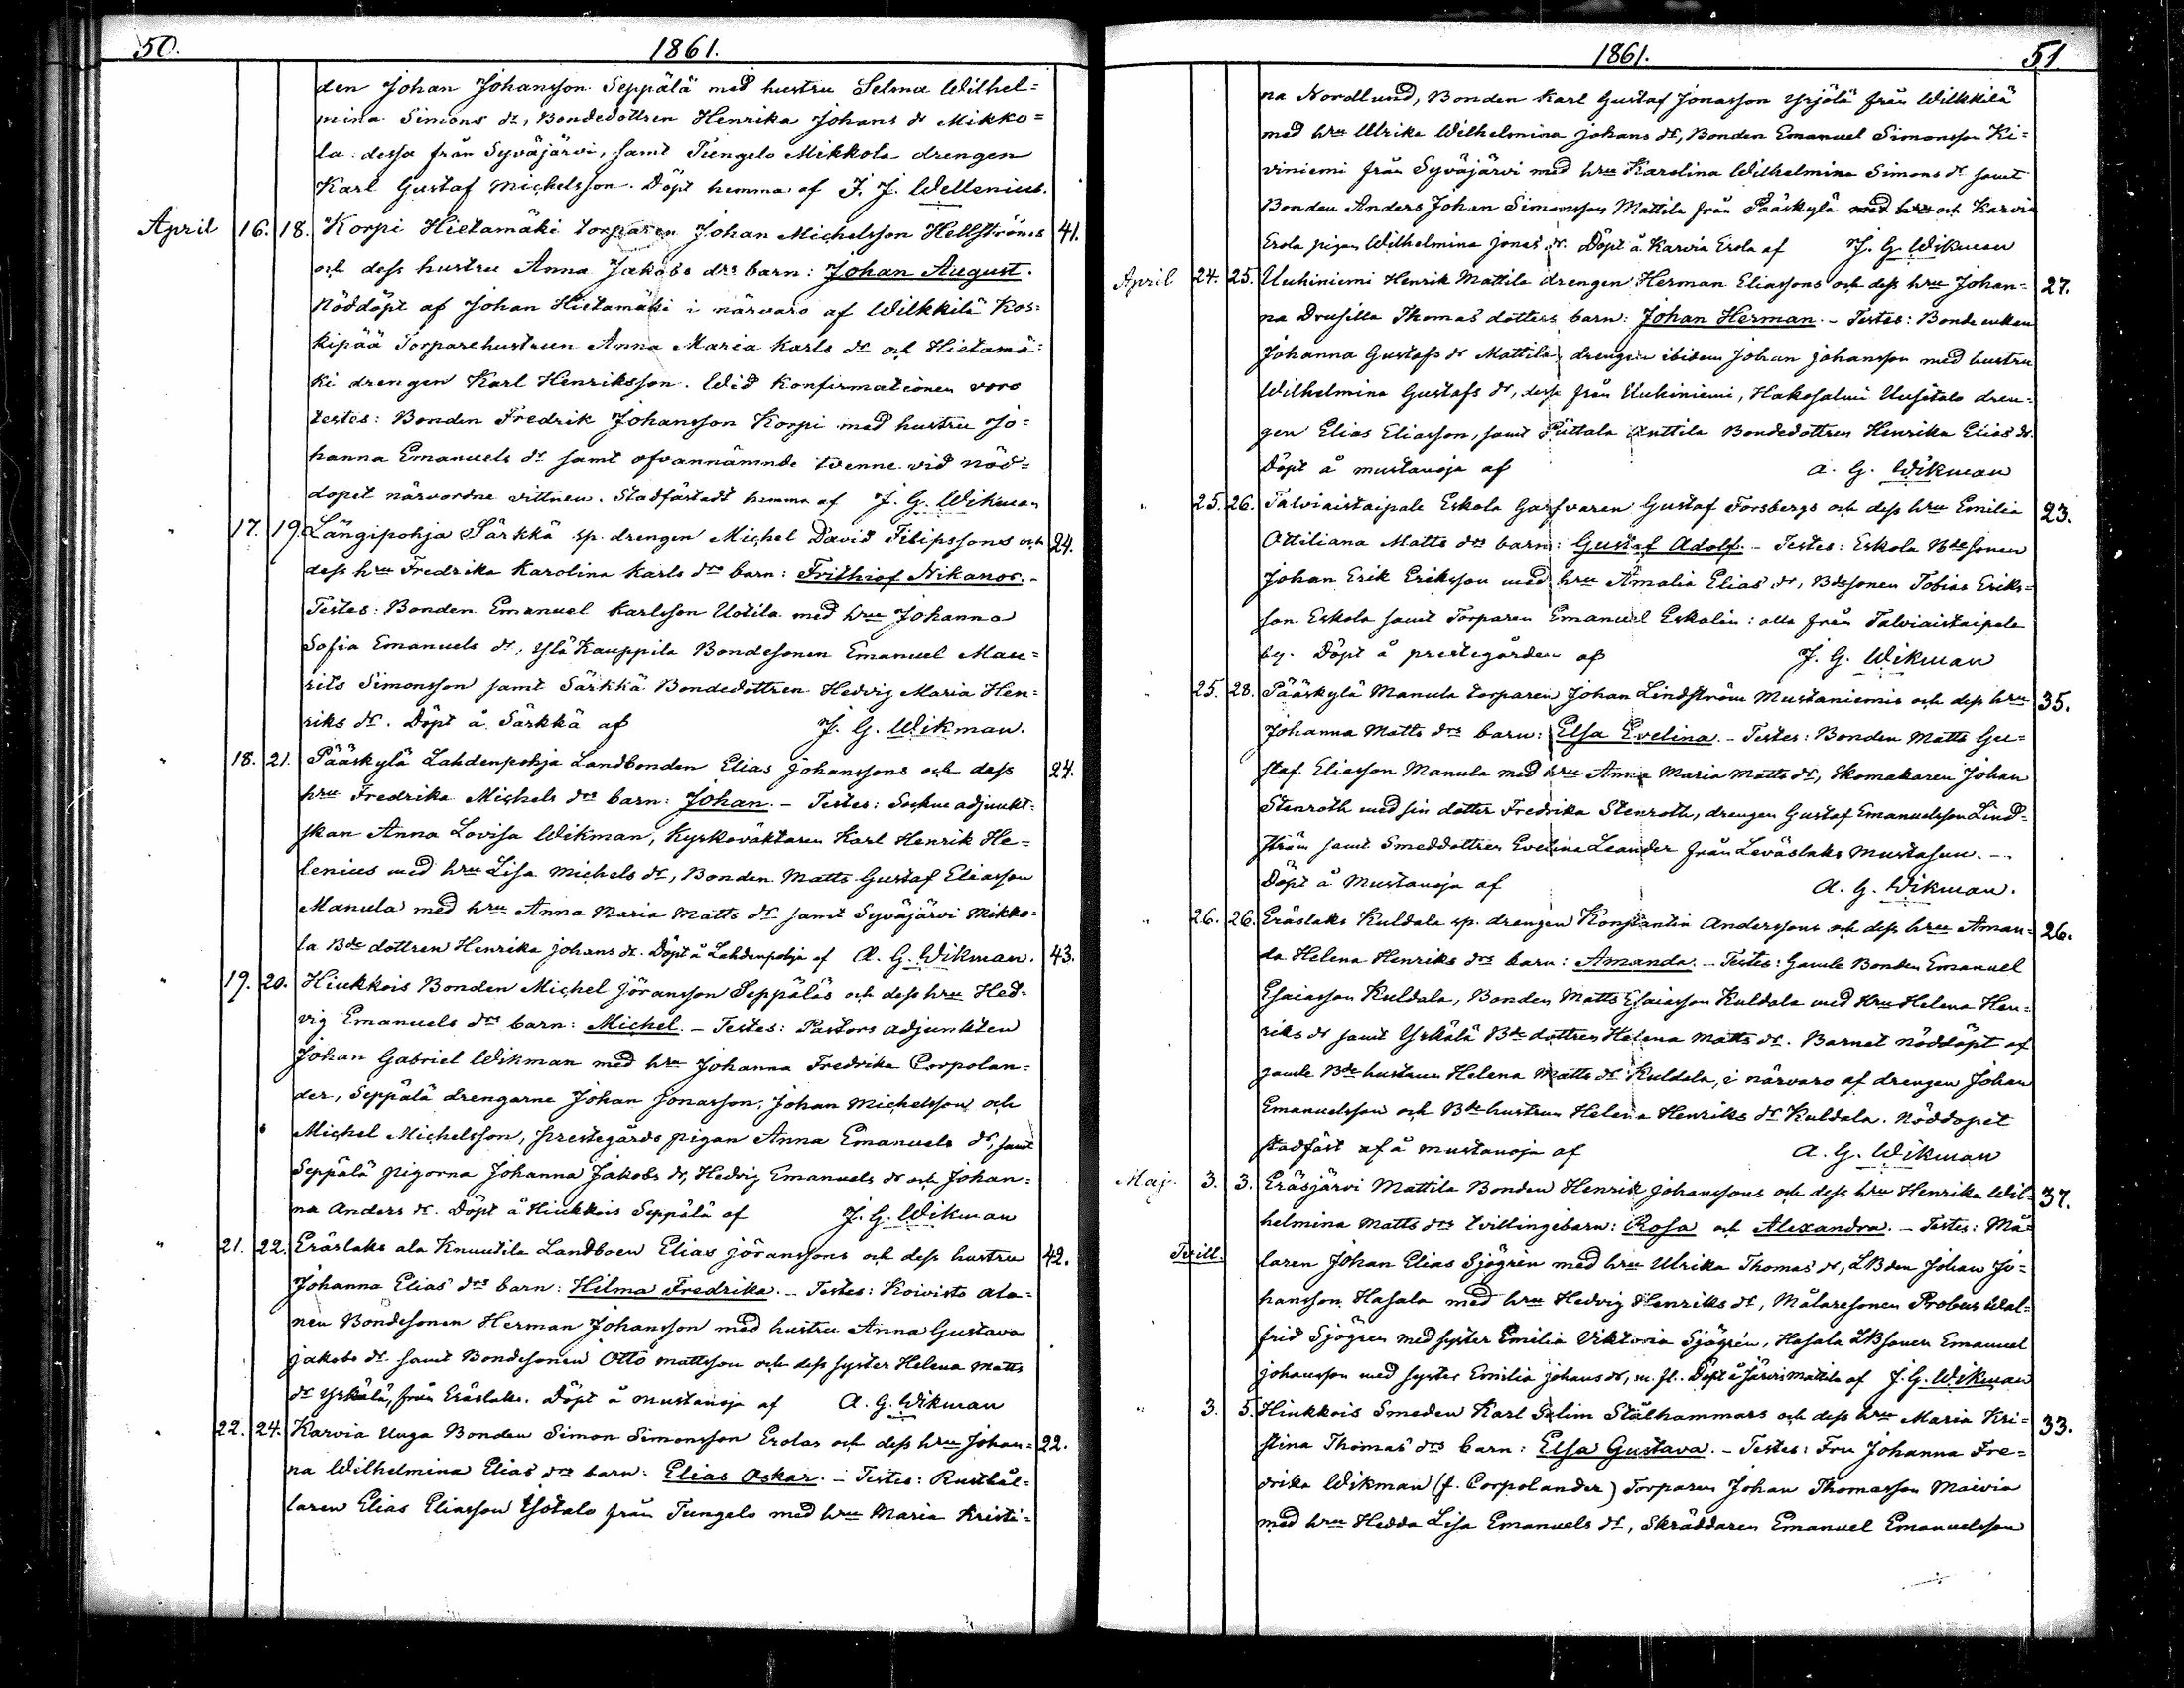 50. 1861.
den Johan Johansson Seppälä med hustru Selma Wilhel=
mina Simons dr, Bondedottren Henrika Johans dr Mikko=
la: dessa från Syväjärvi, samt Tungelo Mikkola drengen
Karl Gustaf Michelsson. Döpt hemma af F. J. Wellenius.
April 16. 18. Korpi Hietamäki torparen Johan Michelsson Hellströms 41.
och dess hustru Anna Jakobs drs barn: Johan August.
Nöddöpt af Johan Hietamäki i närvaro af Wilkkilä Kos=
kipää Torparehustrun Anna Maria Karls dr och Hietamä=
ki drengen Karl Henriksson. Wid Konfirmationen voro
testes: Bonden Fredrik Johansson Korpi med hustru Jo=
hanna Emanuels dr samt ofvannämnde tvenne vid nöd=
dopet närvordne vittnen. Stadfästadt hemma af J. G. Wikman
" 17. 19. Längipohja Särkkä sp. drengen Michel David Filipssons och 24.
dess hru Fredrika Karolina Karls drs barn: Frithiof Nikanor.-
Testes: Bonden Emanuel Karlsson Uotila med hru Johanna
Sofia Emanuels dr, Ylä Kauppila Bondesonen Emanuel Mau=
rits Simonsson samt Särkkä Bondedottren Hedvig Maria Hen=
riks dr. Döpt å Särkkä af J. G. Wikman.
" 18. 21. Pääskylä Lahdenpohja Landbonden Elias Johanssons och dess 24.
hru Fredrika Michels drs barn: Johan. - Testes: Sockne adjunkt=
skan Anna Lovisa Wikman, Kyrkovaktaren Karl Henrik He=
lenius med hru Lisa Michels dr, Bonden Matts Gustaf Eliasson
Manula med hru Anna Maria Matts dr samt Syväjärvi Mikko=
la Bde dottren Henrika Johans dr. Döpt å Lahdenpohja af A. G. Wikman. 43.
" 19. 20. Hiukkois Bonden Michel Jöransson Seppäläs och dess hru Hed=
vig Emanuels drs barn: Michel. - Testes: Pastors adjunkten
Johan Gabriel Wikman med hru Johanna Fredrika Corpolan=
der, Seppälä drengarne Johan Jonasson, Johan Michelsson och
Michel Michelsson, prestegårds pigan Anna Emanuels dr, samt
Seppälä pigorna Johanna Jakobs dr, Hedvig Emanuels dr och Johan=
na Anders dr. Döpt å Hiukkois Seppälä af J. G. Wikman
" 21. 22. Eräslaks ala Knuutila Landboen Elias Jöranssons och dess hustru 42.
Johanna Elias drs barn: Hilma Fredrika. - Testes: Koivisto ala=
nen Bondesonen Herman Johansson med hustru Anna Gustava
Jakobs dr. samt Bondesonen Otto Mattsson och dess syster Helena Matts
dr Yrkälä, från Eräslaks. Döpt å Mustanoja af A. G. Wikman
" 22. 24. Karvia Unga Bonden Simon Simonsson Erolas och dess hru Johan= 22.
na Wilhelmina Elias drs barn: Elias Oskar. - Testes: Rusthål=
laren Elias Eliasson Isotalo från Tungelo med hru Maria Kristi=
1861. 51
na Nordlund, Bonden Karl Gustaf Jonasson Yrjölä från Wilkkilä
med hru Ulrika Wilhelmina Johans dr, Bonden Emanuel Simonsson Ki=
viniemi från Syväjärvi med hru Karolina Wilhelmina Simons dr samt
Bonden Anders Johan Simonsson Mattila från Pääskylä med hru och Karvia
Erola pigan Wilhelmina Jonas dr. Döpt å Karvia Erola af J. G. Wikman
April 24. 25. Uuhiniemi Henrik Mattila drengen Herman Eliassons och dess hru Johan= 27.
na Drusilla Thomas dotters barn: Johan Herman. - Testes: Bonde enkan
Johanna Gustafs dr Mattila, drengen ibidem Johan Johansson med hustru
Wilhelmina Gustafs dr, dessa från Uuhiniemi, Hakosalmi Uusitalo dren=
gen Elias Eliasson, samt Püttala Anttila Bondedottren Henrika Elias dr.
Döpt å mustanoja af A. G. Wikman
" 25. 26. Talviaistaipale Eskola Garfvaren Gustaf Forsbergs och dess hru Emilia 23.
Ottiliana Matts drs barn: Gustaf Adolf. - Testes: Eskola Bdesonen
Johan Erik Eriksson med hru Amalia Elias dr, Bdesonen Tobias Eriks=
son Eskola samt Torparen Emanuel Eskolin: alla från Talviaistaipale
by. Döpt å prestegården af J. G. Wikman
" 25. 28. Pääskylä Manula torparen Johan Lindström Mustaniemis och dess hru 35.
Johanna Matts drs barn: Elsa Evelina. - Testes: Bonden Matts Gu=
staf Eliasson Manula med hru Anna Maria Matts dr, Skomakaren Johan
Stenroth med sin dotter Fredrika Stenroth, drengen Gustaf Emanuelsson Lind=
ström samt Smeddottren Evelina Leander från Leväslaks Mustasuu. -
Döpt å Mustanoja af A. G. Wikman.
" 26. 26. Eräslaks Kuldala sp. drengen Konstantin Anderssons och dess hru Aman= 26.
da Helena Henriks drs barn: Amanda. - Testes: Gamle Bonden Emanuel
Esaiasson Kuldala, Bonden Matts Esaiasson Kuldala med Hru Helena Hen=
riks dr samt Yrkälä Bde dottren Helena Matts dr. Barnet nöddöpt af
gamle Bde hustrun Helena Matts dr Kuldala, i närvaro af drengen Johan
Emanuelsson och Bde hustrun Helena Henriks dr Kuldala. Nöddopet
stadfäst af å mustanoja af A. G. Wikman
Maj. 3. 3. Eräsjärvi Mattila Bonden Henrik Johanssons och dess hru Henrika Wil= 37.
helmina Matts drs tvillingebarn: Rosa och Alexandra. - Testes: Må=
Tvill. laren Johan Elias Sjögrén med hru Ulrika Thomas dr, LBden Johan Jo=
hansson Hasala med hru Hedvig Henriks dr, Målaresonen Probus Wal=
frid Sjögren med syster Emilia Viktoria Sjögrén, Hasala LBsonen Emanuel
Johansson med syster Emilia Johans dr, m. fl. Döpt å Järvimattila af J. G. Wikman
" 3. 5. Hiukkois Smeden Karl Selim Stålhammars och dess hru Maria Kri= 33.
stina Thomas drs barn: Elsa Gustava. - Testes: Fru Johanna Fre=
drika Wikman (f. Corpolander) Torparen Johan Thomasson Maivia
med hru Hedda Lisa Emanuels dr, Skräddaren Emanuel Emanuelsson